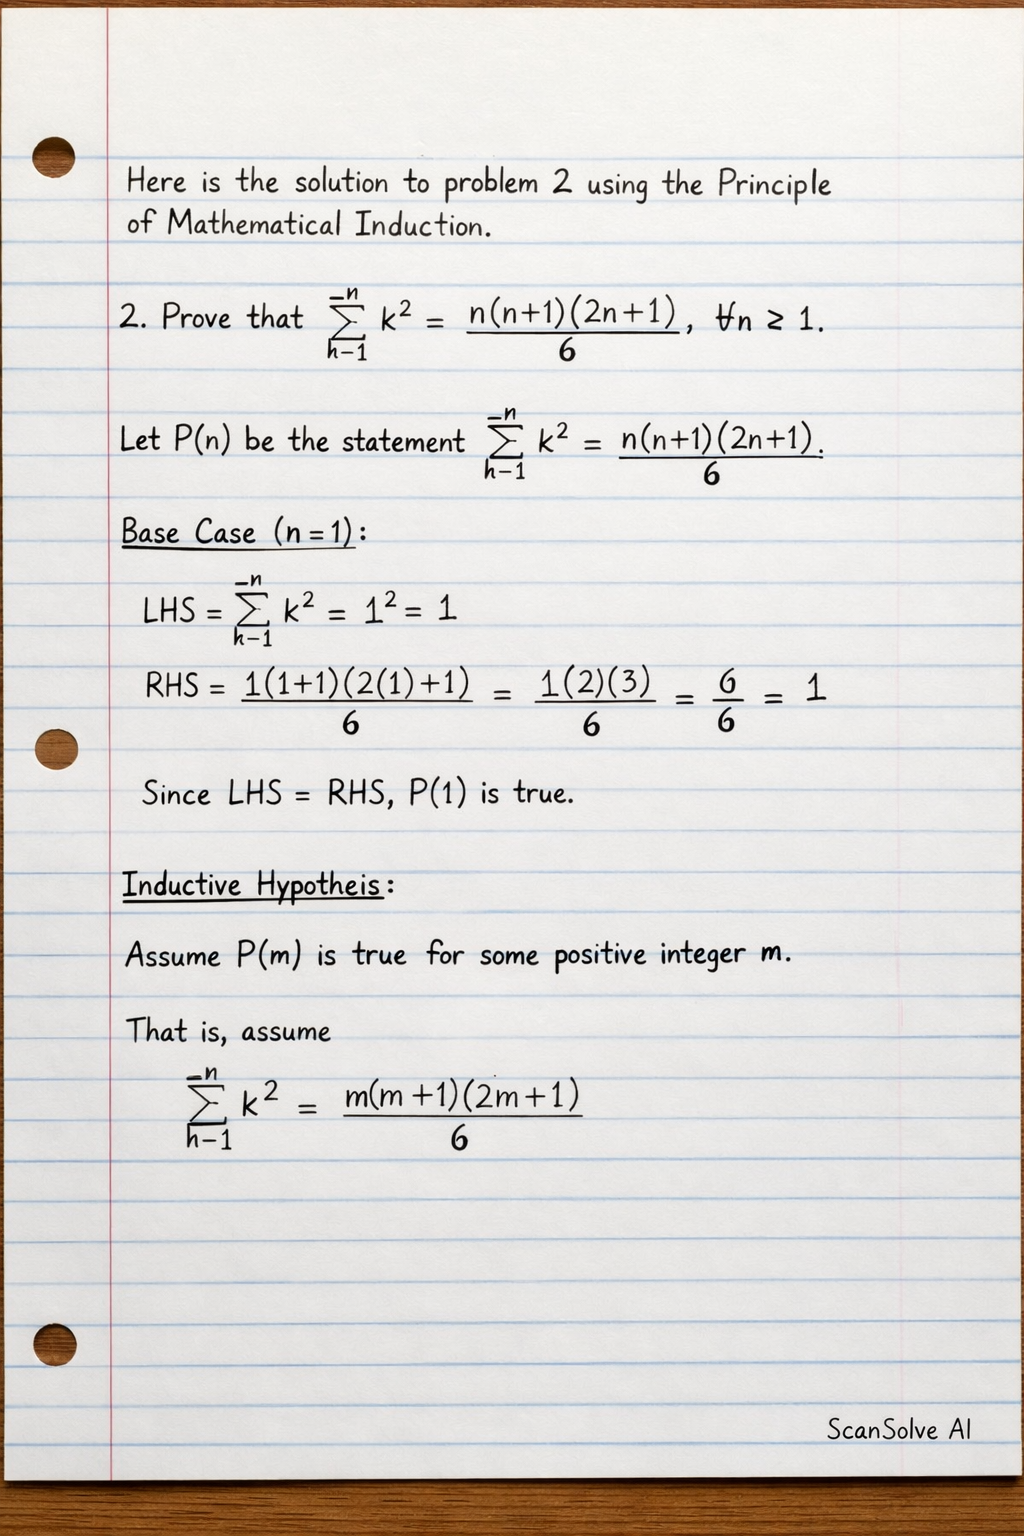 Here is the solution to problem 2 using the Principle
of Mathematical Induction.
2. Prove that ∑_{h-1}^{-n} k² = n(n+1)(2n+1)/6, ∀n ≥ 1.
Let P(n) be the statement ∑_{h-1}^{-n} k² = n(n+1)(2n+1)/6.
Base Case (n=1):
LHS = ∑_{h-1}^{-n} k² = 1² = 1
RHS = 1(1+1)(2(1)+1)/6 = 1(2)(3)/6 = 6/6 = 1
Since LHS = RHS, P(1) is true.
Inductive Hypotheis:
Assume P(m) is true for some positive integer m.
That is, assume
∑_{h-1}^{-n} k² = m(m+1)(2m+1)/6
ScanSolve AI